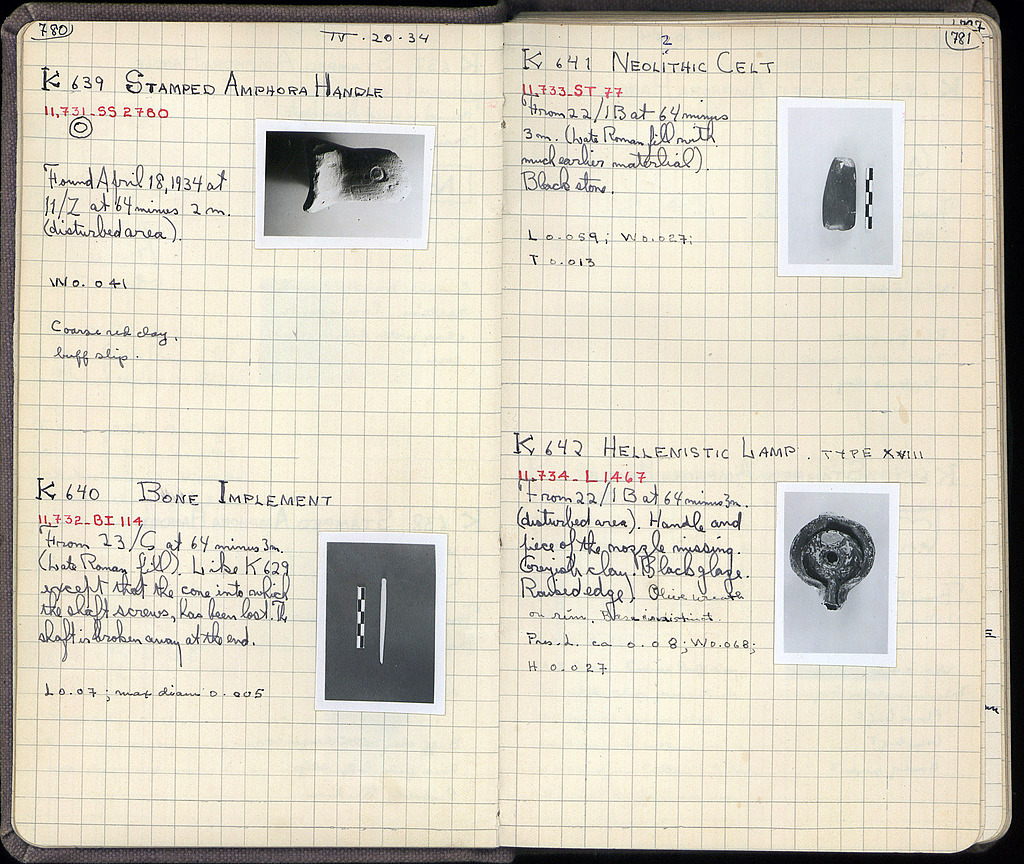 780
IV. 20. 34
K 639 STAMPED AMPHORA HANDLE
11,731-SS 2780
Found April 18, 1934 at
11/Z at 64 minus 2 m.
(disturbed area).
W 0.041
Coarse red clay,
buff slip.
K 640 BONE IMPLEMENT
11,732-BI 114
From 23/S at 64 minus 3m.
(Late Roman fill). Like K 629
except that the cone into which
the shaft screws, has been lost. The
shaft is broken away at the end.
L 0.07; max diam 0.005
781
2
K 641 NEOLITHIC CELT
11,733-ST 77
From 22/1B at 64 minus
3 m. (Late Roman fill with
much earlier material).
Black stone.
L 0.059; W 0.027;
T 0.013
K 642 HELLENISTIC LAMP. TYPE XVIII
11,734-L 1467
From 22/1B at 64 minus 3m.
(disturbed area). Handle and
piece of the nozzle missing.
Greyish clay. Black glaze.
Raised edge. Olive wreath
on rim. Base
Pres. L. ca 0.08; W 0.068;
H 0.027